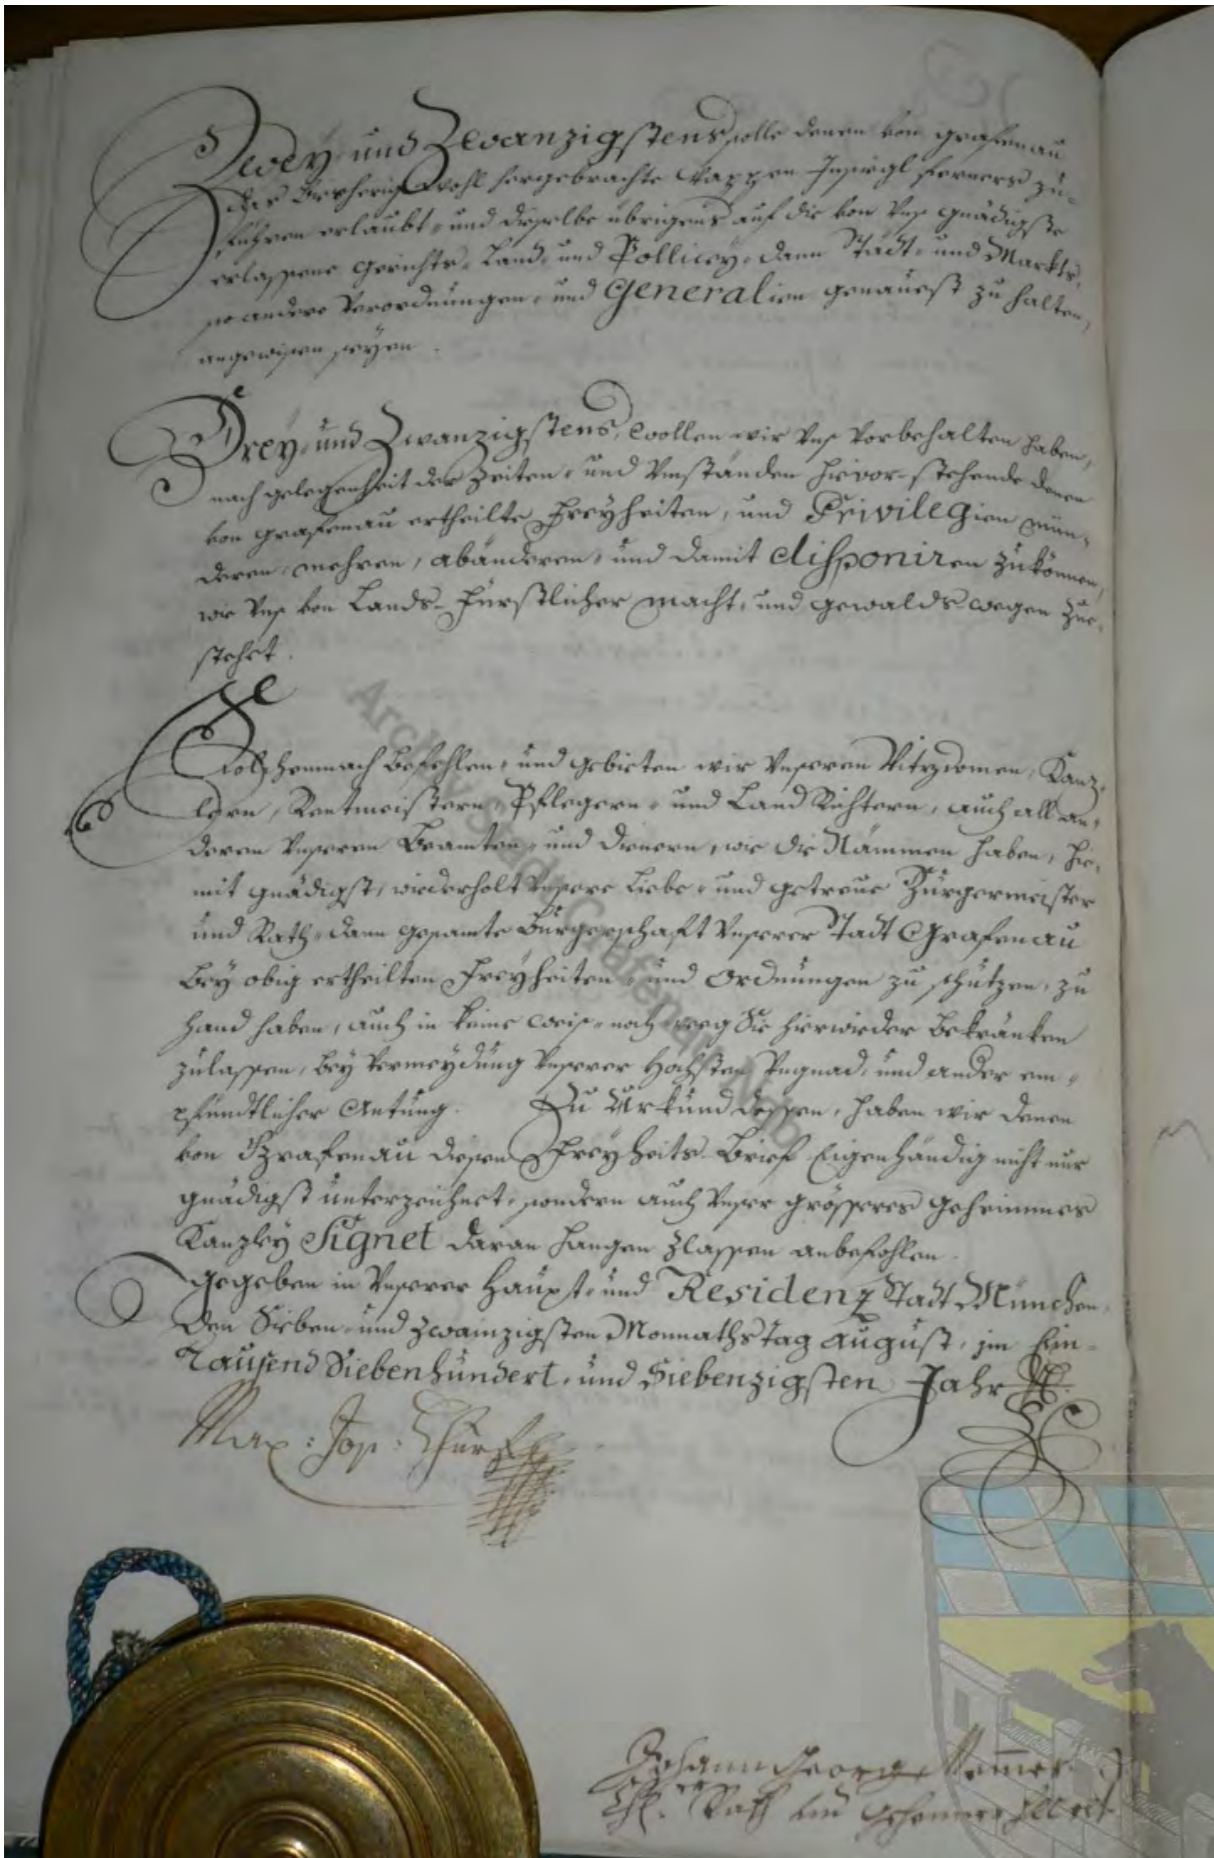 Zwey- und Zwanzigstens solle denen von Grafenau
das bisherig wohl hergebrachte Wappen Insigl ferners zu-
führen erlaubt, und dieselbe übrigens auf die von Uns gnädigst
erlassene Gerichts- Land- und Pollicey- dann Stadt- und Markts-
so andere Verordnungen, und Generalien genauest zu halten,
angewisen seyen.
Drey- und Zwanzigstens, wollen wir Uns Vorbehalten haben,
nach gelegenheit der Zeiten, und Umständen hievor-stehende denen
von Grafenau ertheilte Freyheiten, und Privilegien mün-
deren, mehren, abänderen, und damit disponiren zukönnen,
wie Uns von Lands-Fürstlicher macht, und gewalds wegen zue-
stehet.
Solchemnach Befehlen, und gebieten wir Unseren Vitzdomen, Kanz-
lern, Rentmeistern, Pflegern, und Land Richtern, auch all an-
deren Unseren Beamten, und dienern, wie die Nammen haben, hie-
mit gnädigst, wiederholt Unsere Liebe, und getreue Bürgermeister
und Rath, dann gesamte Bürgerschaft Unserer Stadt Grafenau
bey obig ertheilten Freyheiten, und Ordnungen zu schützen, zu
hand haben, auch in keine weis, noch weeg Sie hierwieder bekränken
zulassen, bey Vermeydung Unserer Höchsten Ungnad, und ander em-
pfindtlicher Antung. Zu Urkund dessen, haben wir denen
von Grafenau diesen Freyheits-Brief Eigenhändig nicht nur
gnädigst unterzeichnet, sondern auch Unser grösseres geheimmes
Kanzley Signet daran hangen zlassen anbefohlen.
Gegeben in Unserer Haupt- und Residenz Stadt München,
den Sieben- und zwainzigsten Monnaths Tag August, im Ein-
Tausend Siebenhundert, und Siebenzigsten Jahr
Max: Jos: Churfst
Johann Georg
Chf. Rath und geheimer
Archiv Stadt Grafenau Ndb.